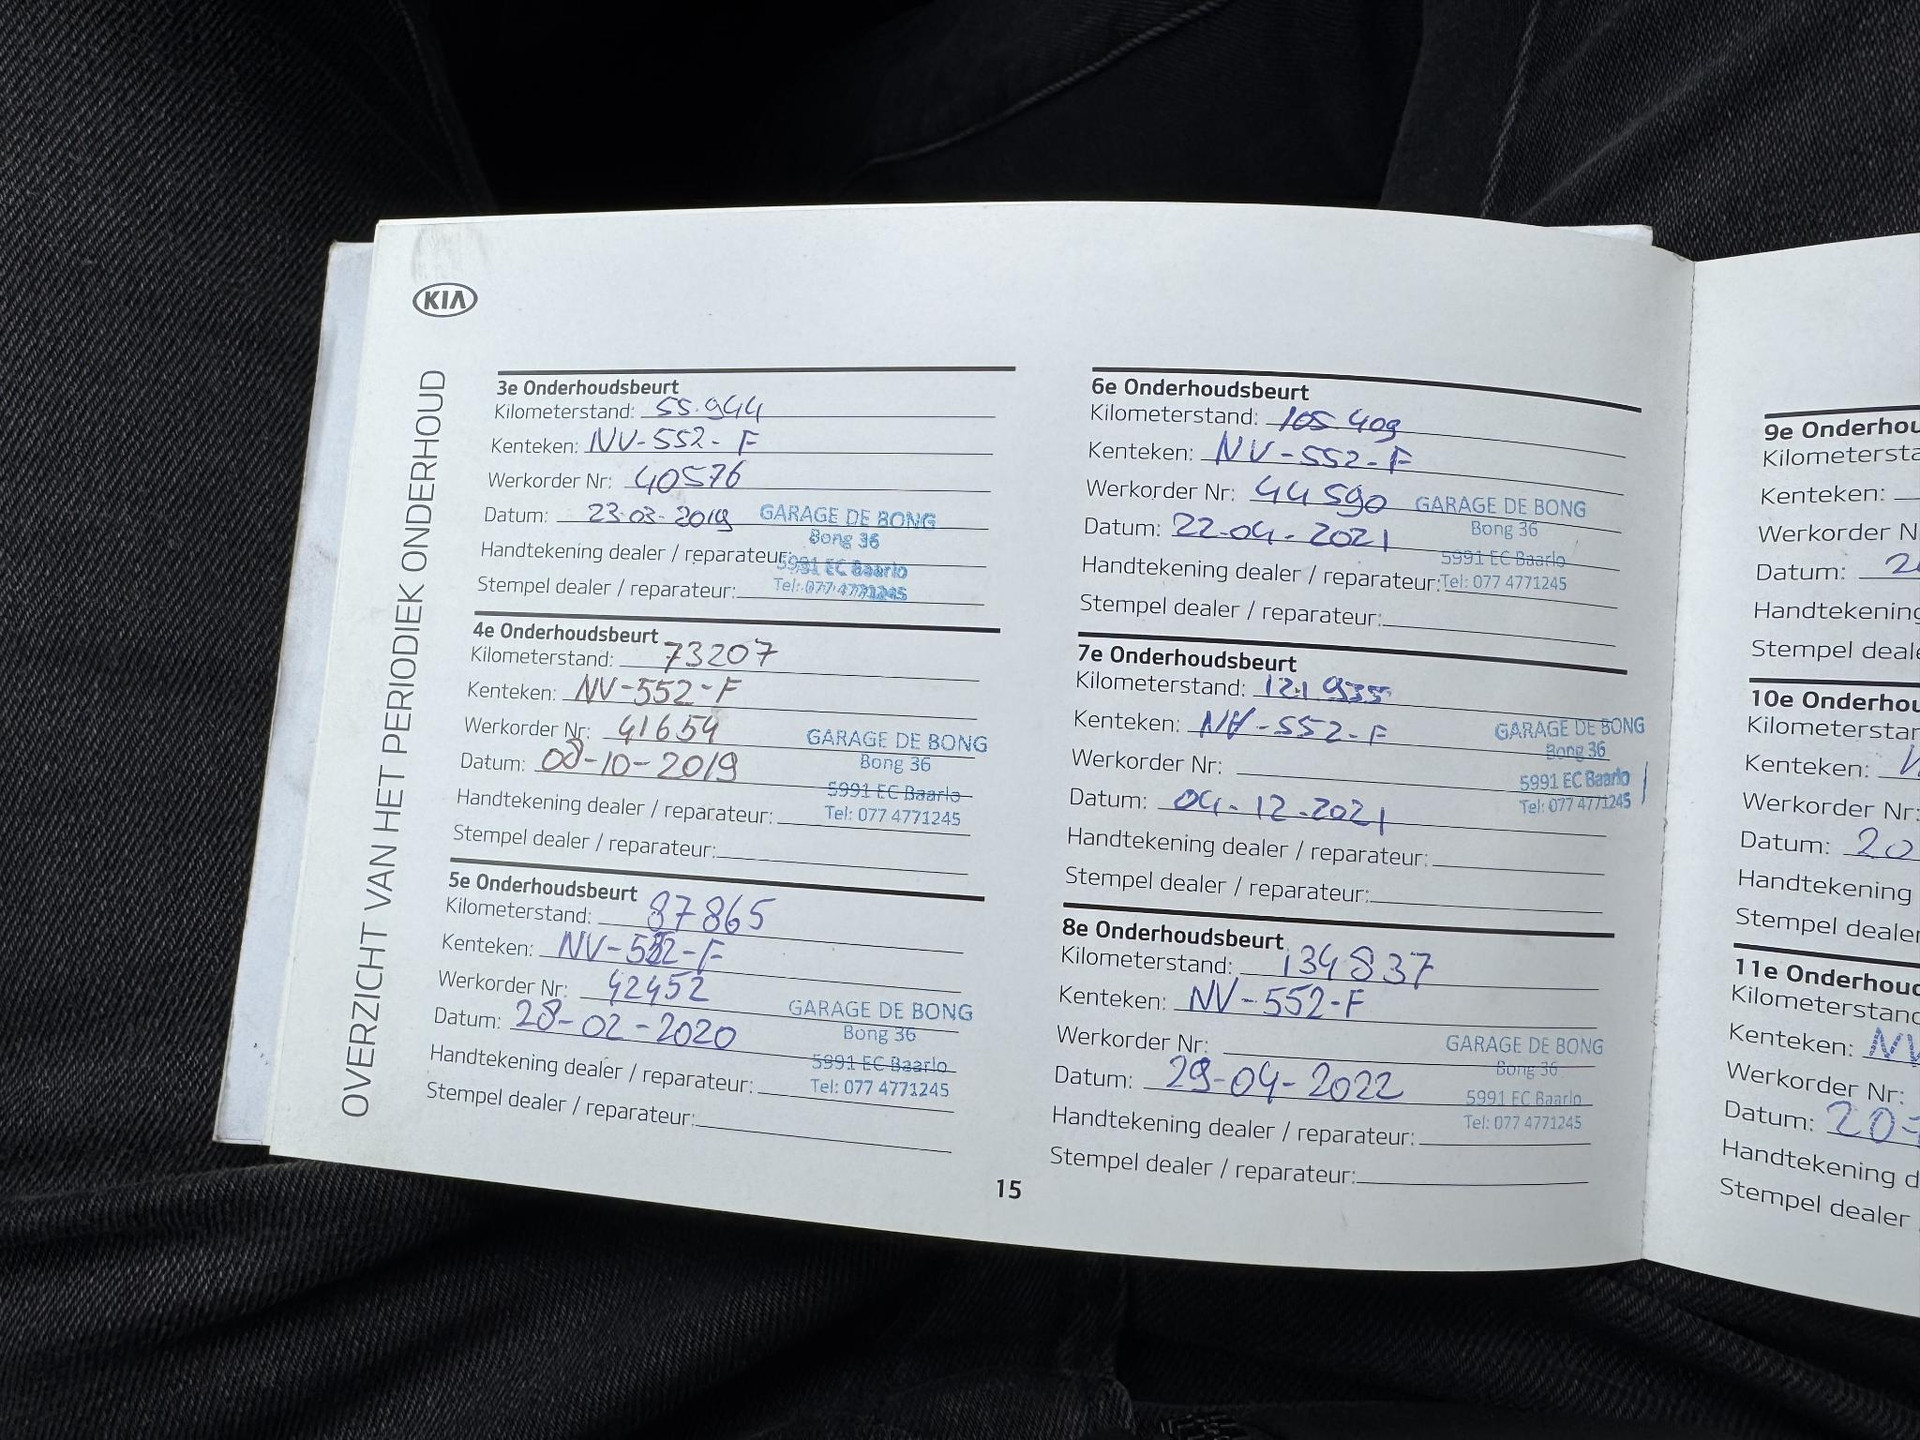 KIA
OVERZICHT VAN HET PERIODIEK ONDERHOUD
3e Onderhoudsbeurt
Kilometerstand: 55.944
Kenteken: NV-552-F
Werkorder Nr: 40576
Datum: 23-03-2019
Handtekening dealer / reparateur:
Stempel dealer / reparateur:
GARAGE DE BONG
Bong 36
5991 EC Baarlo
Tel: 077 4771245
4e Onderhoudsbeurt
Kilometerstand: 73207
Kenteken: NV-552-F
Werkorder Nr: 41654
Datum: 08-10-2019
Handtekening dealer / reparateur:
Stempel dealer / reparateur:
GARAGE DE BONG
Bong 36
5991 EC Baarlo
Tel: 077 4771245
5e Onderhoudsbeurt
Kilometerstand: 87865
Kenteken: NV-552-F
Werkorder Nr: 42452
Datum: 28-02-2020
Handtekening dealer / reparateur:
Stempel dealer / reparateur:
GARAGE DE BONG
Bong 36
5991 EC Baarlo
Tel: 077 4771245
6e Onderhoudsbeurt
Kilometerstand: 105 409
Kenteken: NV-552-F
Werkorder Nr: 44590
Datum: 22-04-2021
Handtekening dealer / reparateur:
Stempel dealer / reparateur:
GARAGE DE BONG
Bong 36
5991 EC Baarlo
Tel: 077 4771245
7e Onderhoudsbeurt
Kilometerstand: 121 935
Kenteken: NV-552-F
Werkorder Nr:
Datum: 04-12-2021
Handtekening dealer / reparateur:
Stempel dealer / reparateur:
GARAGE DE BONG
Bong 36
5991 EC Baarlo
Tel: 077 4771245
8e Onderhoudsbeurt
Kilometerstand: 134837
Kenteken: NV-552-F
Werkorder Nr:
Datum: 29-04-2022
Handtekening dealer / reparateur:
Stempel dealer / reparateur:
GARAGE DE BONG
Bong 36
5991 EC Baarlo
Tel: 077 4771245
15
9e Onderhou
Kilometersta
Kenteken:
Werkorder N
Datum: 2
Handtekening
Stempel deale
10e Onderhou
Kilometerstar
Kenteken:
Werkorder Nr:
Datum: 20
Handtekening
Stempel dealer
11e Onderhoud
Kilometerstand
Kenteken: NV
Werkorder Nr:
Datum: 20-
Handtekening d
Stempel dealer